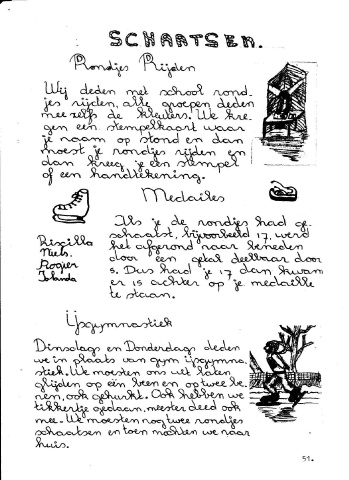 SCHAATSEN.
Rondjes Rijden
Wij deden met school rond-
jes rijden, alle groepen deden
mee zelfs de kleuters. We kre-
gen een stempelkaart waar
je naam op stond en dan
moest je rondjes rijden en
dan kreeg je een stempel
of een handtekening.
Medailes
Als je de rondjes had ge-
schaatst, bijvoorbeeld 17, werd
het afgerond naar beneden
door een getal deelbaar door
5. Dus had je 17, dan kwam
er 15 achter op je medaille
te staan.
Priscilla
Niels.
Rogier
Jolanda
Ijsgymnastiek
Dinsdag en Donderdag deden
we in plaats van gym ijsgymna-
stiek. We moesten ons uit laten
glijden op één been en op twee be-
nen, ook gehurkt. Ook hebben we
tikkertje gedaan, meester deed ook
mee. We moesten nog twee rondjes
schaatsen en toen mochten we naar
huis.
51.